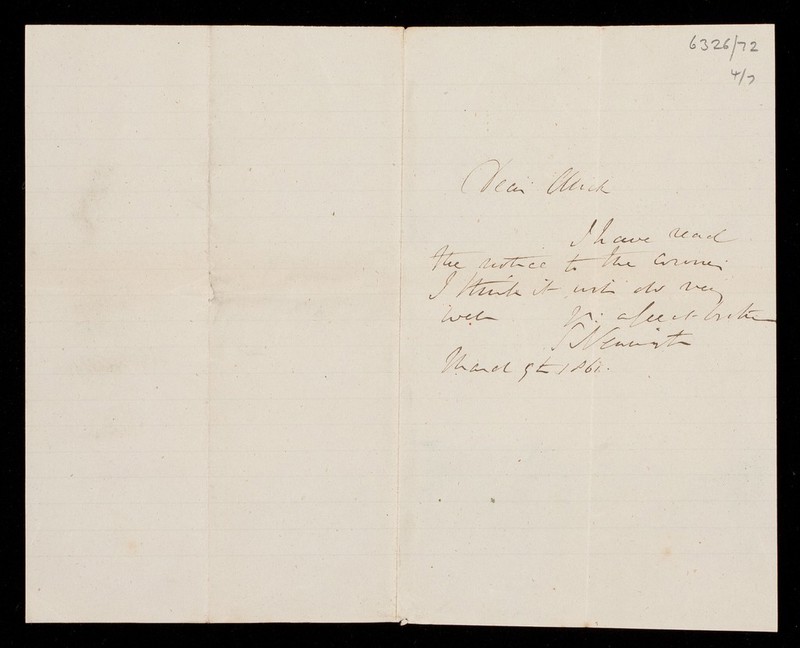 6326/72
4/7
Dear
I have read
the notice to the Coroner
I think it will do very
well Yr: affect brother
S Newington
March 9th 1861.